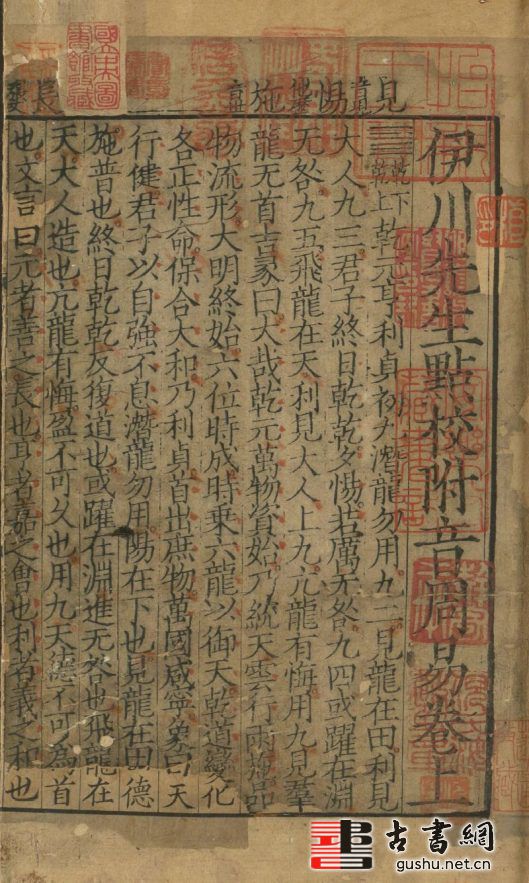 伊川先生點校附音周易卷上
䷀乾下乾上乾元亨利貞初九潛龍勿用九二見龍在田利見
大人九三君子終日乾乾夕惕若厲无咎九四或躍在淵
无咎九五飛龍在天利見大人上九亢龍有悔用九見羣
龍无首吉彖曰大哉乾元萬物資始乃統天雲行雨施品
物流形大明終始六位時成時乘六龍以御天乾道變化
各正性命保合大和乃利貞首出庶物萬國咸寧象曰天
行健君子以自強不息潛龍勿用陽在下也見龍在田德
施普也終日乾乾反復道也或躍在淵進无咎也飛龍在
天大人造也亢龍有悔盈不可久也用九天德不可為首
也文言曰元者善之長也亨者嘉之會也利者義之和也
見
惕
施
長
古書網
gushu.net.cn